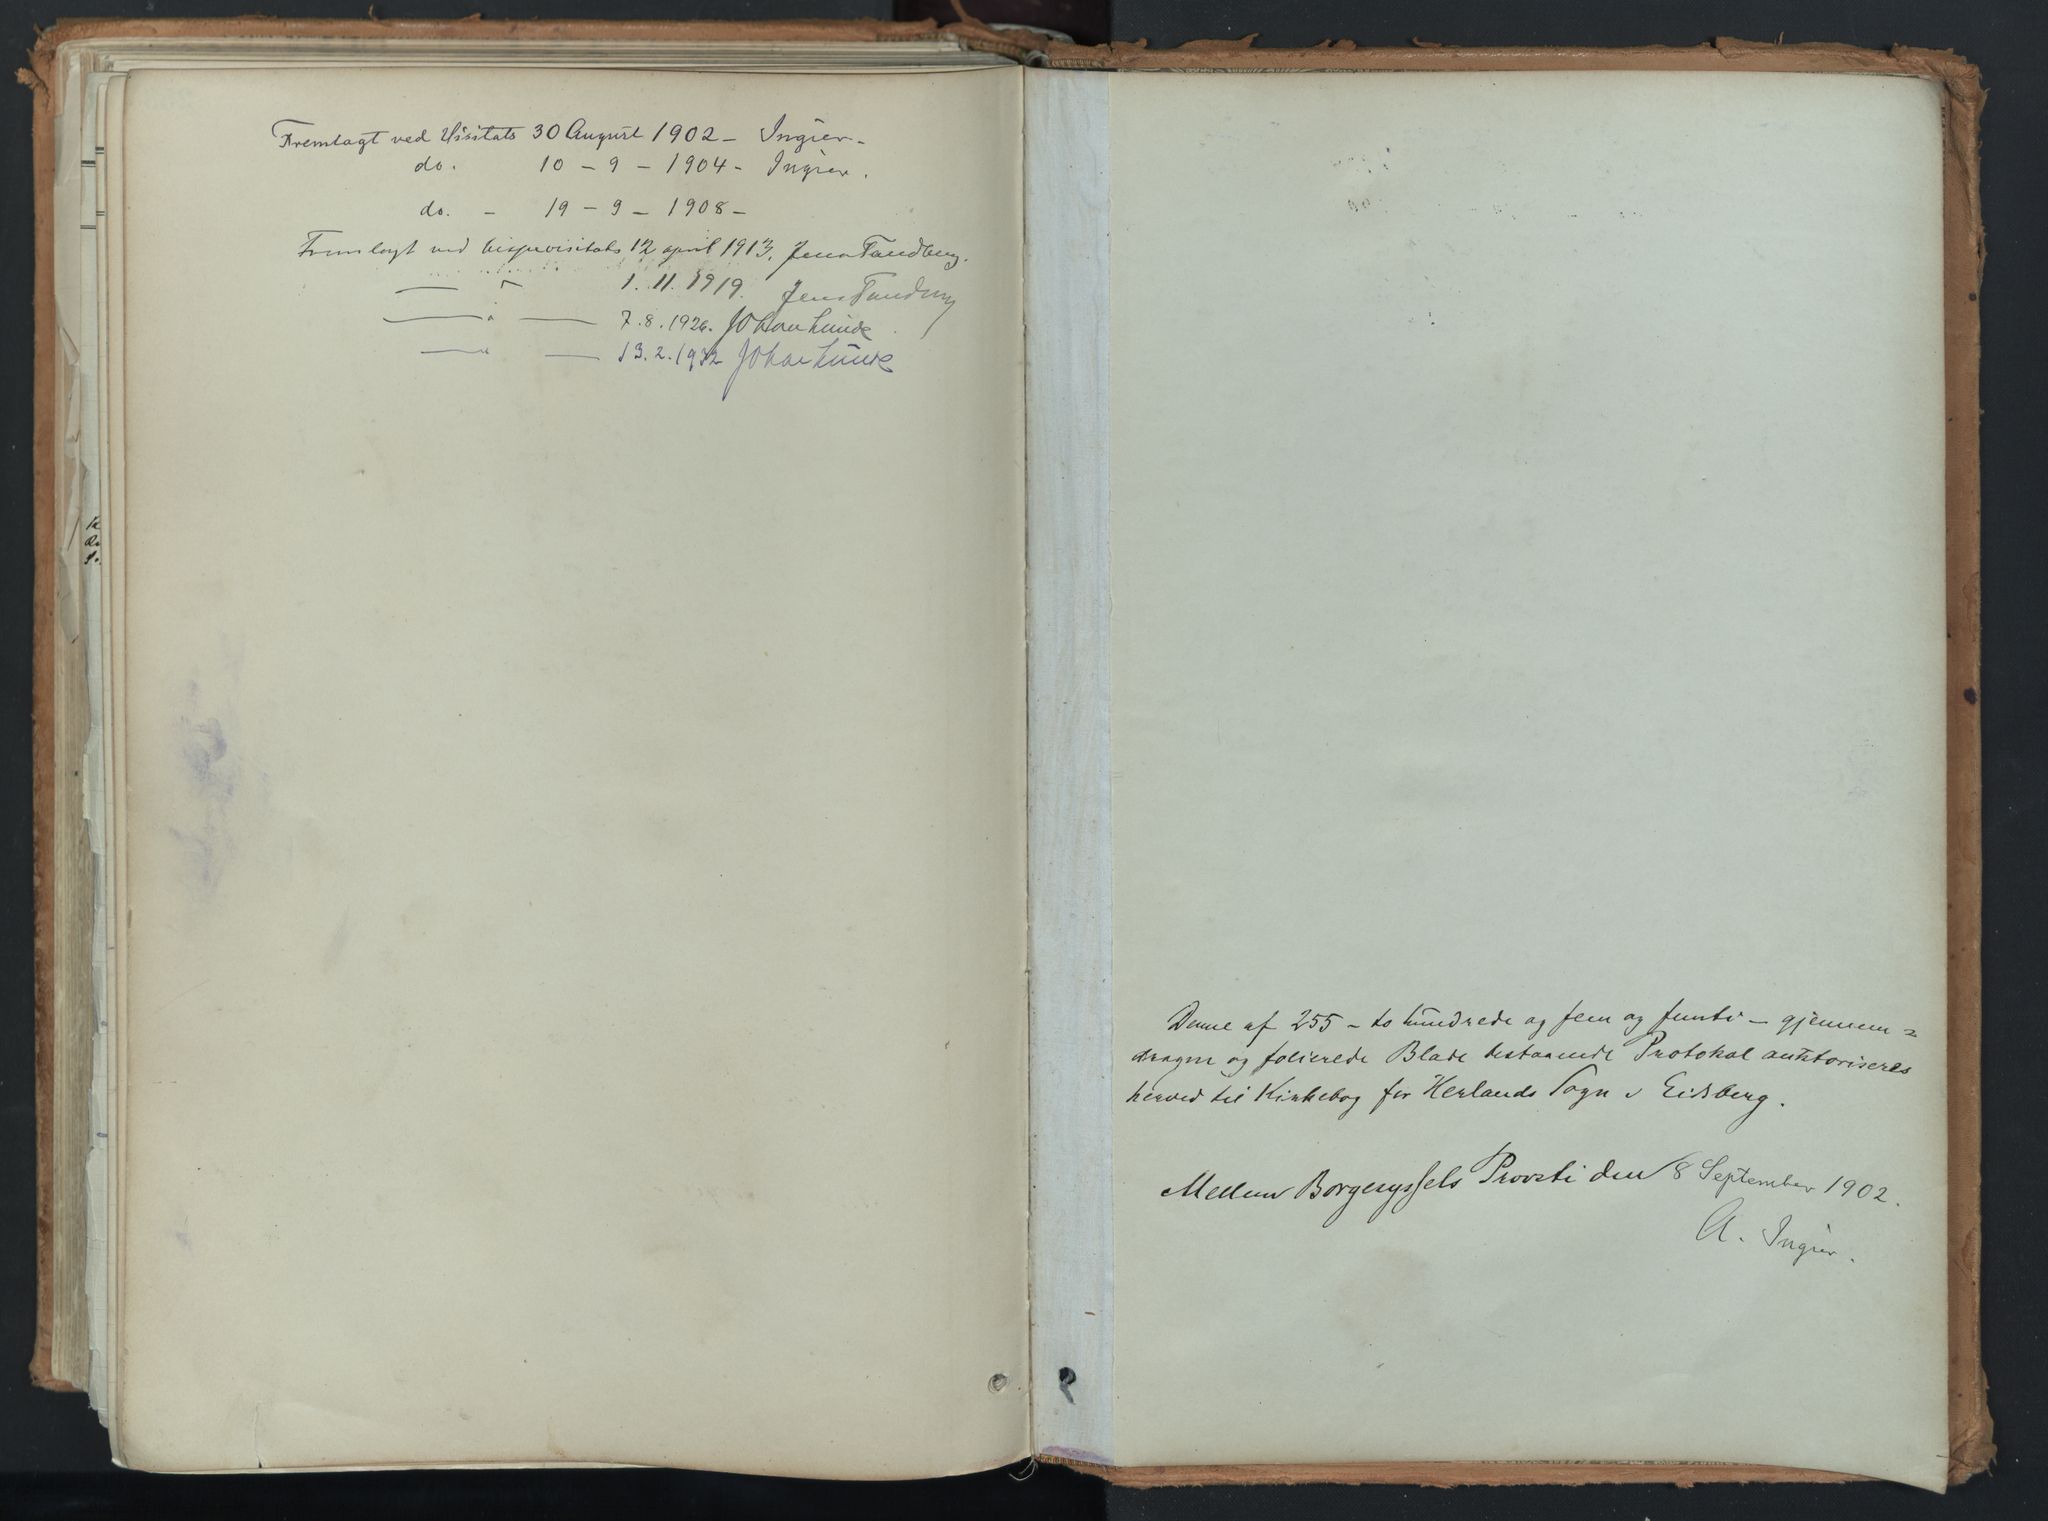 Fremlagt ved Visitats 30 August 1902 – Ingier.
do. 10 – 9 – 1904 – Ingier.
do. – 19 – 9 – 1908 –
Fremlagt ved bispevisitats 12 april 1913, Jens Tandberg.
— " 1. 11. 1919. Jens Tandberg
— " — 7. 8. 1926. Johan Lunde
— " — 13. 2. 1932 Johan Lunde
Denne af 255 – to hundrede og fem og femti – gjennem=
dragne og folierede Blade bestaaende Protokol autoriseres
herved til Kirkebog for Herlands Sogn i Eidsberg.
Mellem Borgesyssels Provsti den 8 September 1902.
A. Ingier.